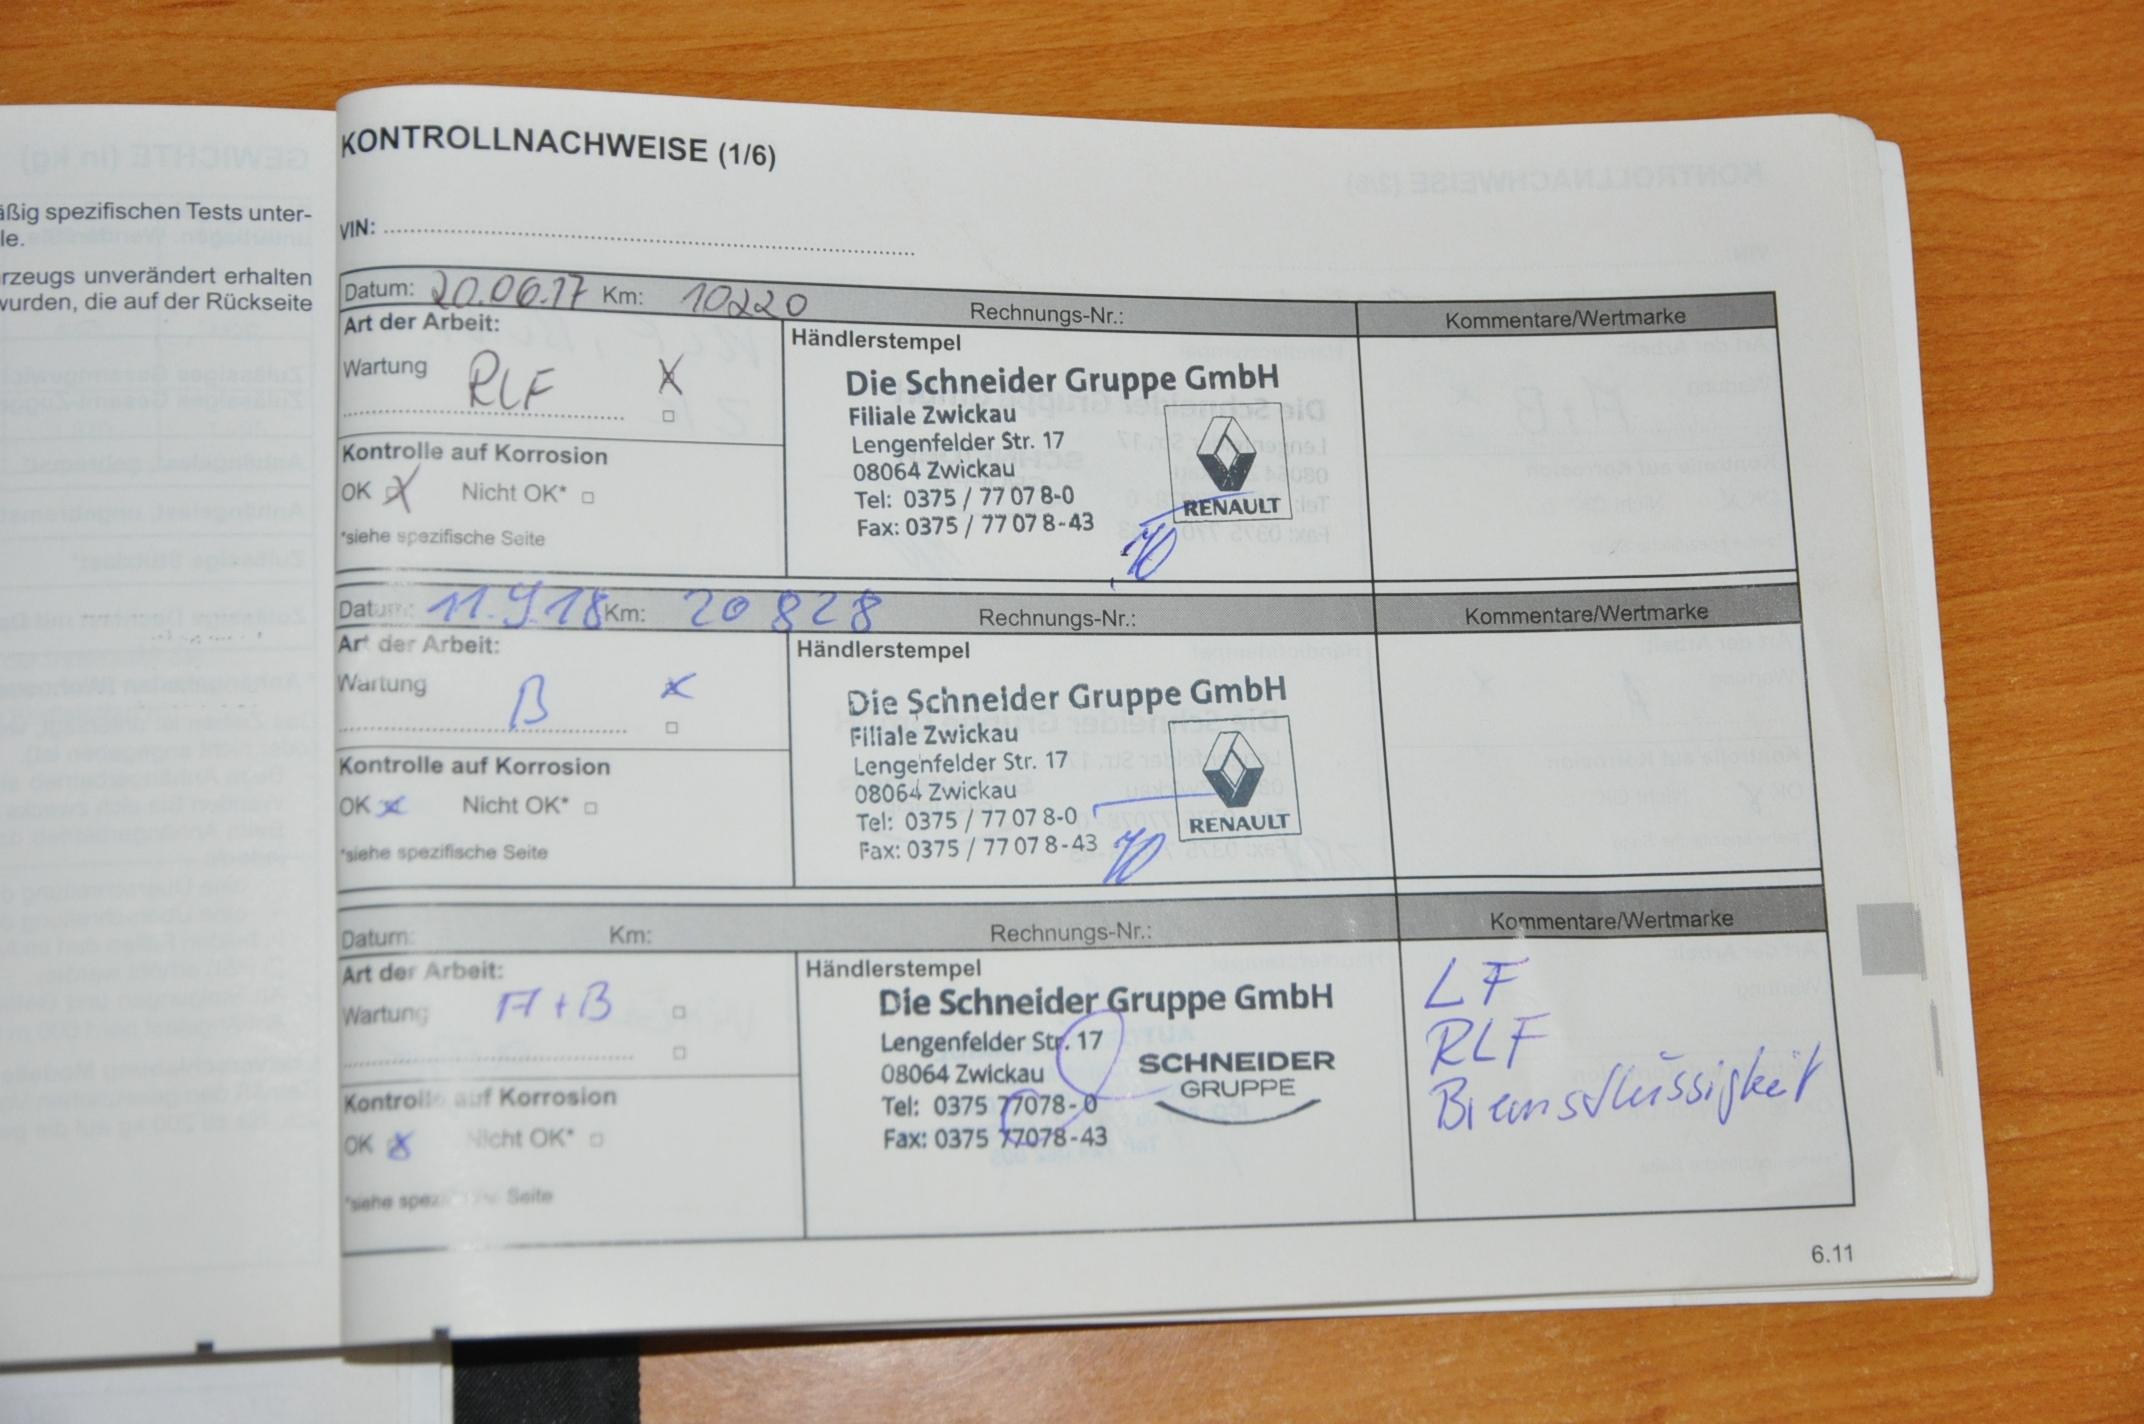 äßig spezifischen Tests unter-
le.
rzeugs unverändert erhalten
wurden, die auf der Rückseite
KONTROLLNACHWEISE (1/6)
VIN:
Datum: 20.06.17 Km: 10220 Rechnungs-Nr.: Kommentare/Wertmarke
Art der Arbeit:
Wartung RLF X
Kontrolle auf Korrosion
OK X Nicht OK*
*siehe spezifische Seite
Händlerstempel
Die Schneider Gruppe GmbH
Filiale Zwickau
Lengenfelder Str. 17
08064 Zwickau
Tel: 0375 / 77 07 8-0
Fax: 0375 / 77 07 8-43
RENAULT
Datum: 11.9.18 Km: 20828 Rechnungs-Nr.: Kommentare/Wertmarke
Art der Arbeit:
Wartung B X
Kontrolle auf Korrosion
OK X Nicht OK*
*siehe spezifische Seite
Händlerstempel
Die Schneider Gruppe GmbH
Filiale Zwickau
Lengenfelder Str. 17
08064 Zwickau
Tel: 0375 / 77 07 8-0
Fax: 0375 / 77 07 8-43
RENAULT
Datum: Km: Rechnungs-Nr.: Kommentare/Wertmarke
Art der Arbeit:
Wartung A+B
Kontrolle auf Korrosion
OK X Nicht OK*
*siehe spezifische Seite
Händlerstempel
Die Schneider Gruppe GmbH
Lengenfelder Str. 17
08064 Zwickau
Tel: 0375 77078-0
Fax: 0375 77078-43
SCHNEIDER
GRUPPE
LF
RLF
Bremsflüssigkeit
6.11